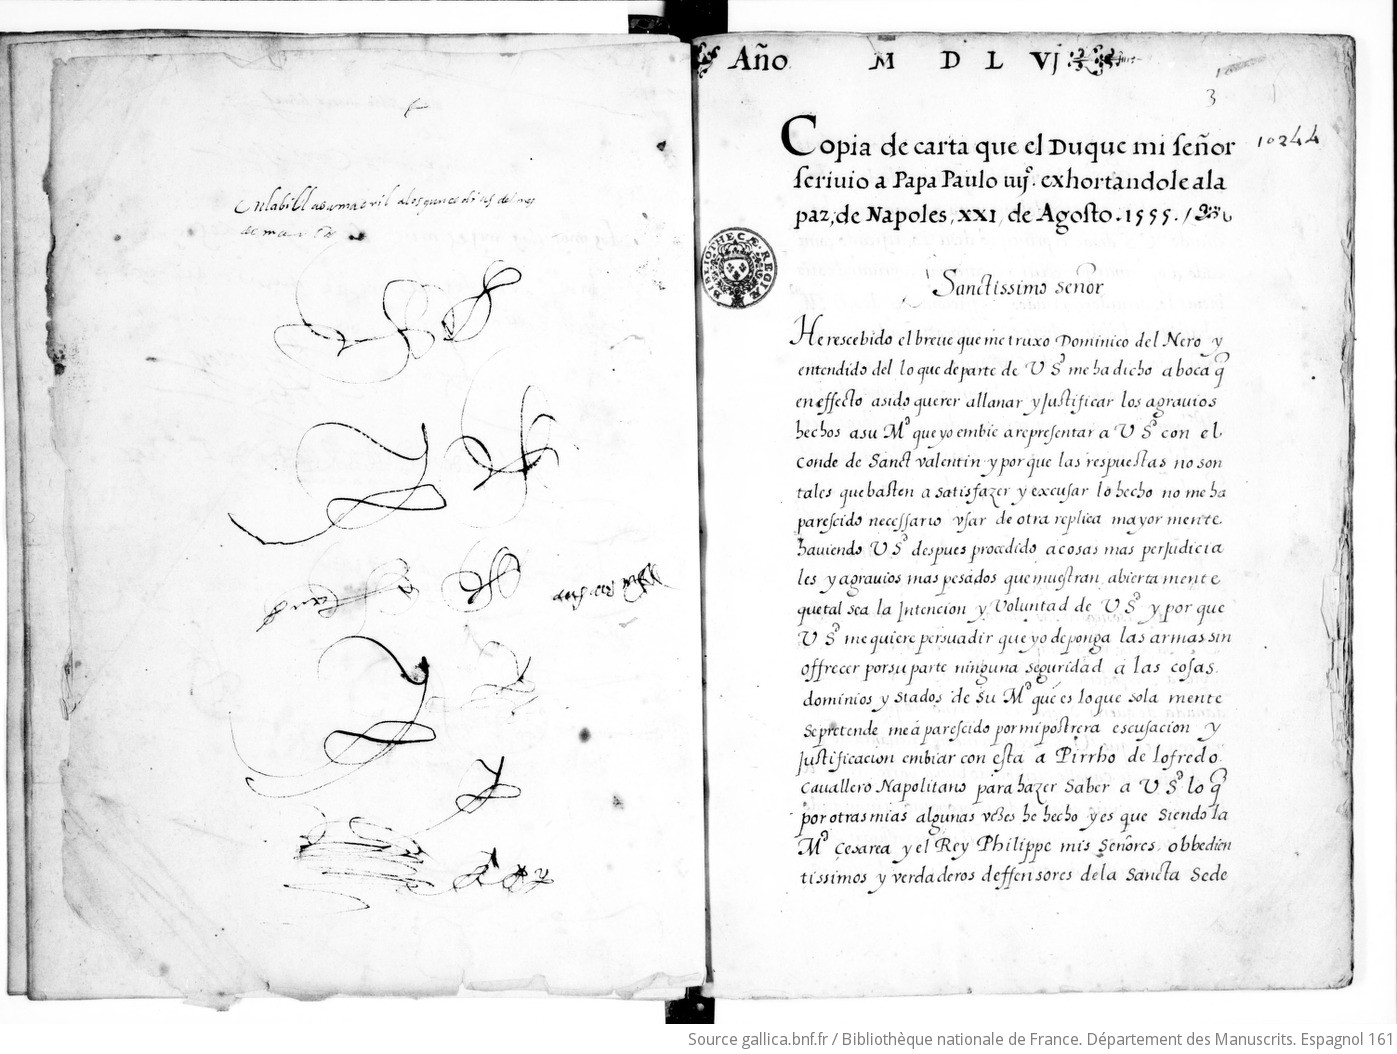 En la billa de
de
Año M D L Vj
3
10244
Copia de carta que el Duque mi señor
scriuio a Papa Paulo iiij. exhortandole a la
paz, de Napoles, XXI, de Agosto. 1555.
BIBLIOTHECÆ REGIÆ
Sanctissimo señor
He rescebido el breue que me truxo Dominico del Nero y
entendido del lo que de parte de V Sᵈ me ha dicho a boca q̃
en effecto a sido querer allanar y Justificar los agrauios
hechos a su Mᵈ que yo embie a representar a V Sᵈ con el
conde de Sanct valentin y por que las respuestas no son
tales que basten a satisfazer y excusar lo hecho no me ha
parescido necessario vsar de otra replica mayor mente
hauiendo V Sᵈ despues procedido a cosas mas perJudicia
les y agrauios mas pesados que muestran abierta mente
que tal sea la Intencion y Voluntad de V Sᵈ y por que
V Sᵈ me quiere persuadir que yo deponga las armas sin
offrecer por su parte ninguna seguridad a las cosas
dominios y stados de su Mᵈ que es lo que sola mente
se pretende me á parescido por mi postrera escusacion y
Justificacion embiar con esta a Pirrho de lofredo
Cauallero Napolitano para hazer saber a V Sᵈ lo q̃
por otras mias algunas vezes he hecho y es que siendo la
Mᵈ Cesarea y el Rey Philippe mis señores, obbedien
tissimos y verdaderos deffensores de la Sancta Sede
Source gallica.bnf.fr / Bibliothèque nationale de France. Département des Manuscrits. Espagnol 161